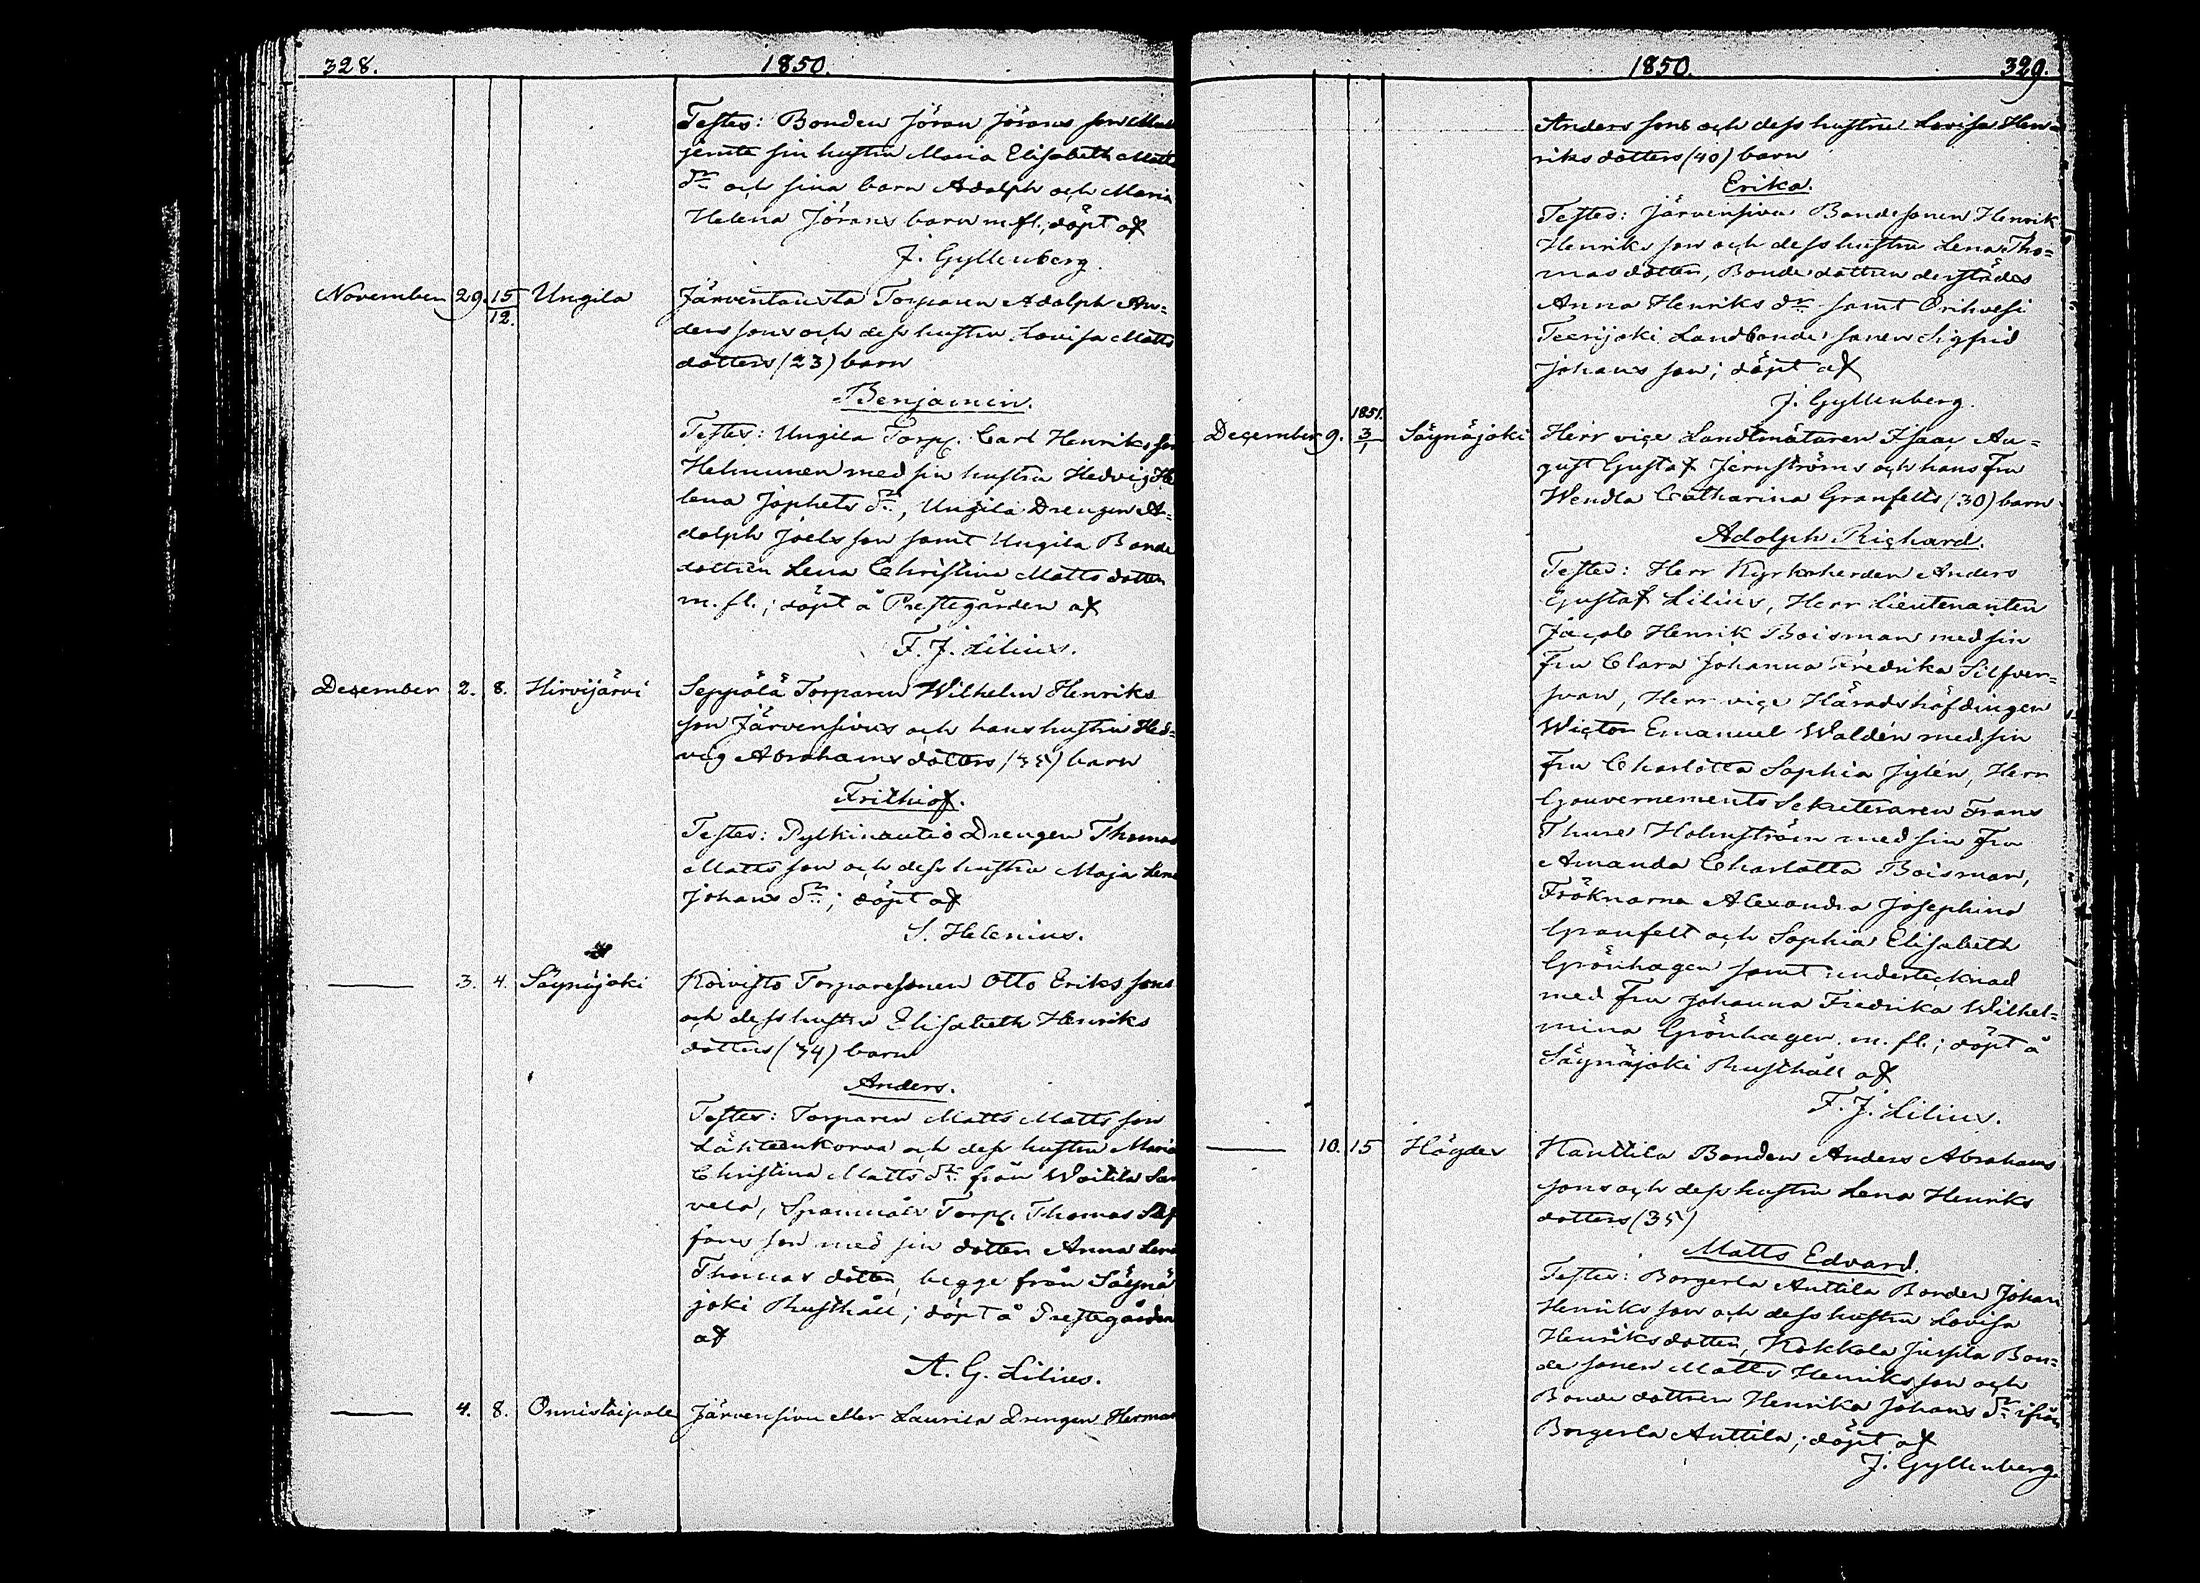 328. 1850.
Testes: Bonden Jöran Jörans son Matt
jemte sin hustru Maria Elisabeth Matts
dr och sina barn Adolph och Maria
Helena Jörans barn m. fl.; döpt af
J. Gyllenberg.
November 29. 15/12. Ungila Järventausta Torparen Adolph An=
ders sons och dess hustru Lovisa Matts
dotters (23) barn
Benjamin.
Testes: Ungila Torp. Carl Henriks son
Helminen med sin hustru Hedvig He
lena Japhets dr, Ungila Drengen A=
dolph Joels son samt Ungila Bonde
dottren Lena Christina Matts dotter
m. fl.; döpt å Prestegården af
F. J. Lilius.
December 2. 8. Hirvijärvi Seppälä Torparen Wilhelm Henriks
son Järvensivus och hans hustru Hed=
vig Abrahams dotters (35) barn
Frithiof.
Testes: Pylkinautio Drengen Thomas
Matts son och dess hustru Maja Lena
Johans dr; döpt af
S. Helenius.
— 3. 4. Säynäjoki Koivisto Torparesonen Otto Eriks sons
och dess hustru Elisabeth Henriks
dotters (34) barn
Anders.
Testes: Torparen Matts Matts son
Lähteenkorva och dess hustru Maria
Christina Matts dr från Woitila Sa
vela, Torp. Thomas Stef
fans son med sin dotter Anna Lena
Thomas dotter, begge från Säynä
joki Rusthåll; döpt å Prestegården
af
A. G. Lilius.
— 4. 8. Onnistaipale Järvensivu eller Laurila Drengen Herman
1850. 329.
Anders sons och dess hustru Lovisa Hen=
riks dotters (40) barn
Erika.
Testes: Järvensivu Bondesonen Henrik
Henriks son och dess hustru Lena Tho=
mas dotter, Bonde dottren derstädes
Anna Henriks dr samt Orihvesi
Teerijoki Landbonde sonen Sigfrid
Johans son; döpt af
J. Gyllenberg.
December 9. 1851. 3/1 Säynäjoki Herr vice Landtmätaren Isaac Au=
gust Gustaf Jernströms och hans Fru
Wendla Catharina Granfelts (30) barn
Adolph Richard.
Testes: Herr Kyrkoherden Anders
Gustaf Lilius, Herr Lieutenanten
Jacob Henrik Boisman med sin
Fru Clara Johanna Fredrika Silfver=
svan, Herr vice Häradshöfdingen
Wictor Emanuel Waldén med sin
Fru Charlotta Sophia Jylén, Herr
Gouvernements Sekreteraren Frans
Thure Holmström med sin Fru
Amanda Charlotta Boisman,
Fröknarna Alexandra Josephina
Granfelt och Sophia Elisabeth
Grönhagen samt undertecknad
med Fru Johanna Fredrika Wilhel=
mina Grönhagen m. fl.; döpt å
Säynäjoki Rusthåll af
F. J. Lilius.
— 10. 15 Högder Hanttila Bonden Anders Abrahams
sons och dess hustru Lena Henriks
dotters (35)
Matts Edvard.
Testes: Borgerla Anttila Bonden Johan
Henriks son och dess hustru Lovisa
Henriks dotter, Kokkola Juspila Bon=
de sonen Matts Henriks son och
Bonde dottren Henrika Johans dr ifrån
Borgerla Anttila; döpt af
J. Gyllenberg.